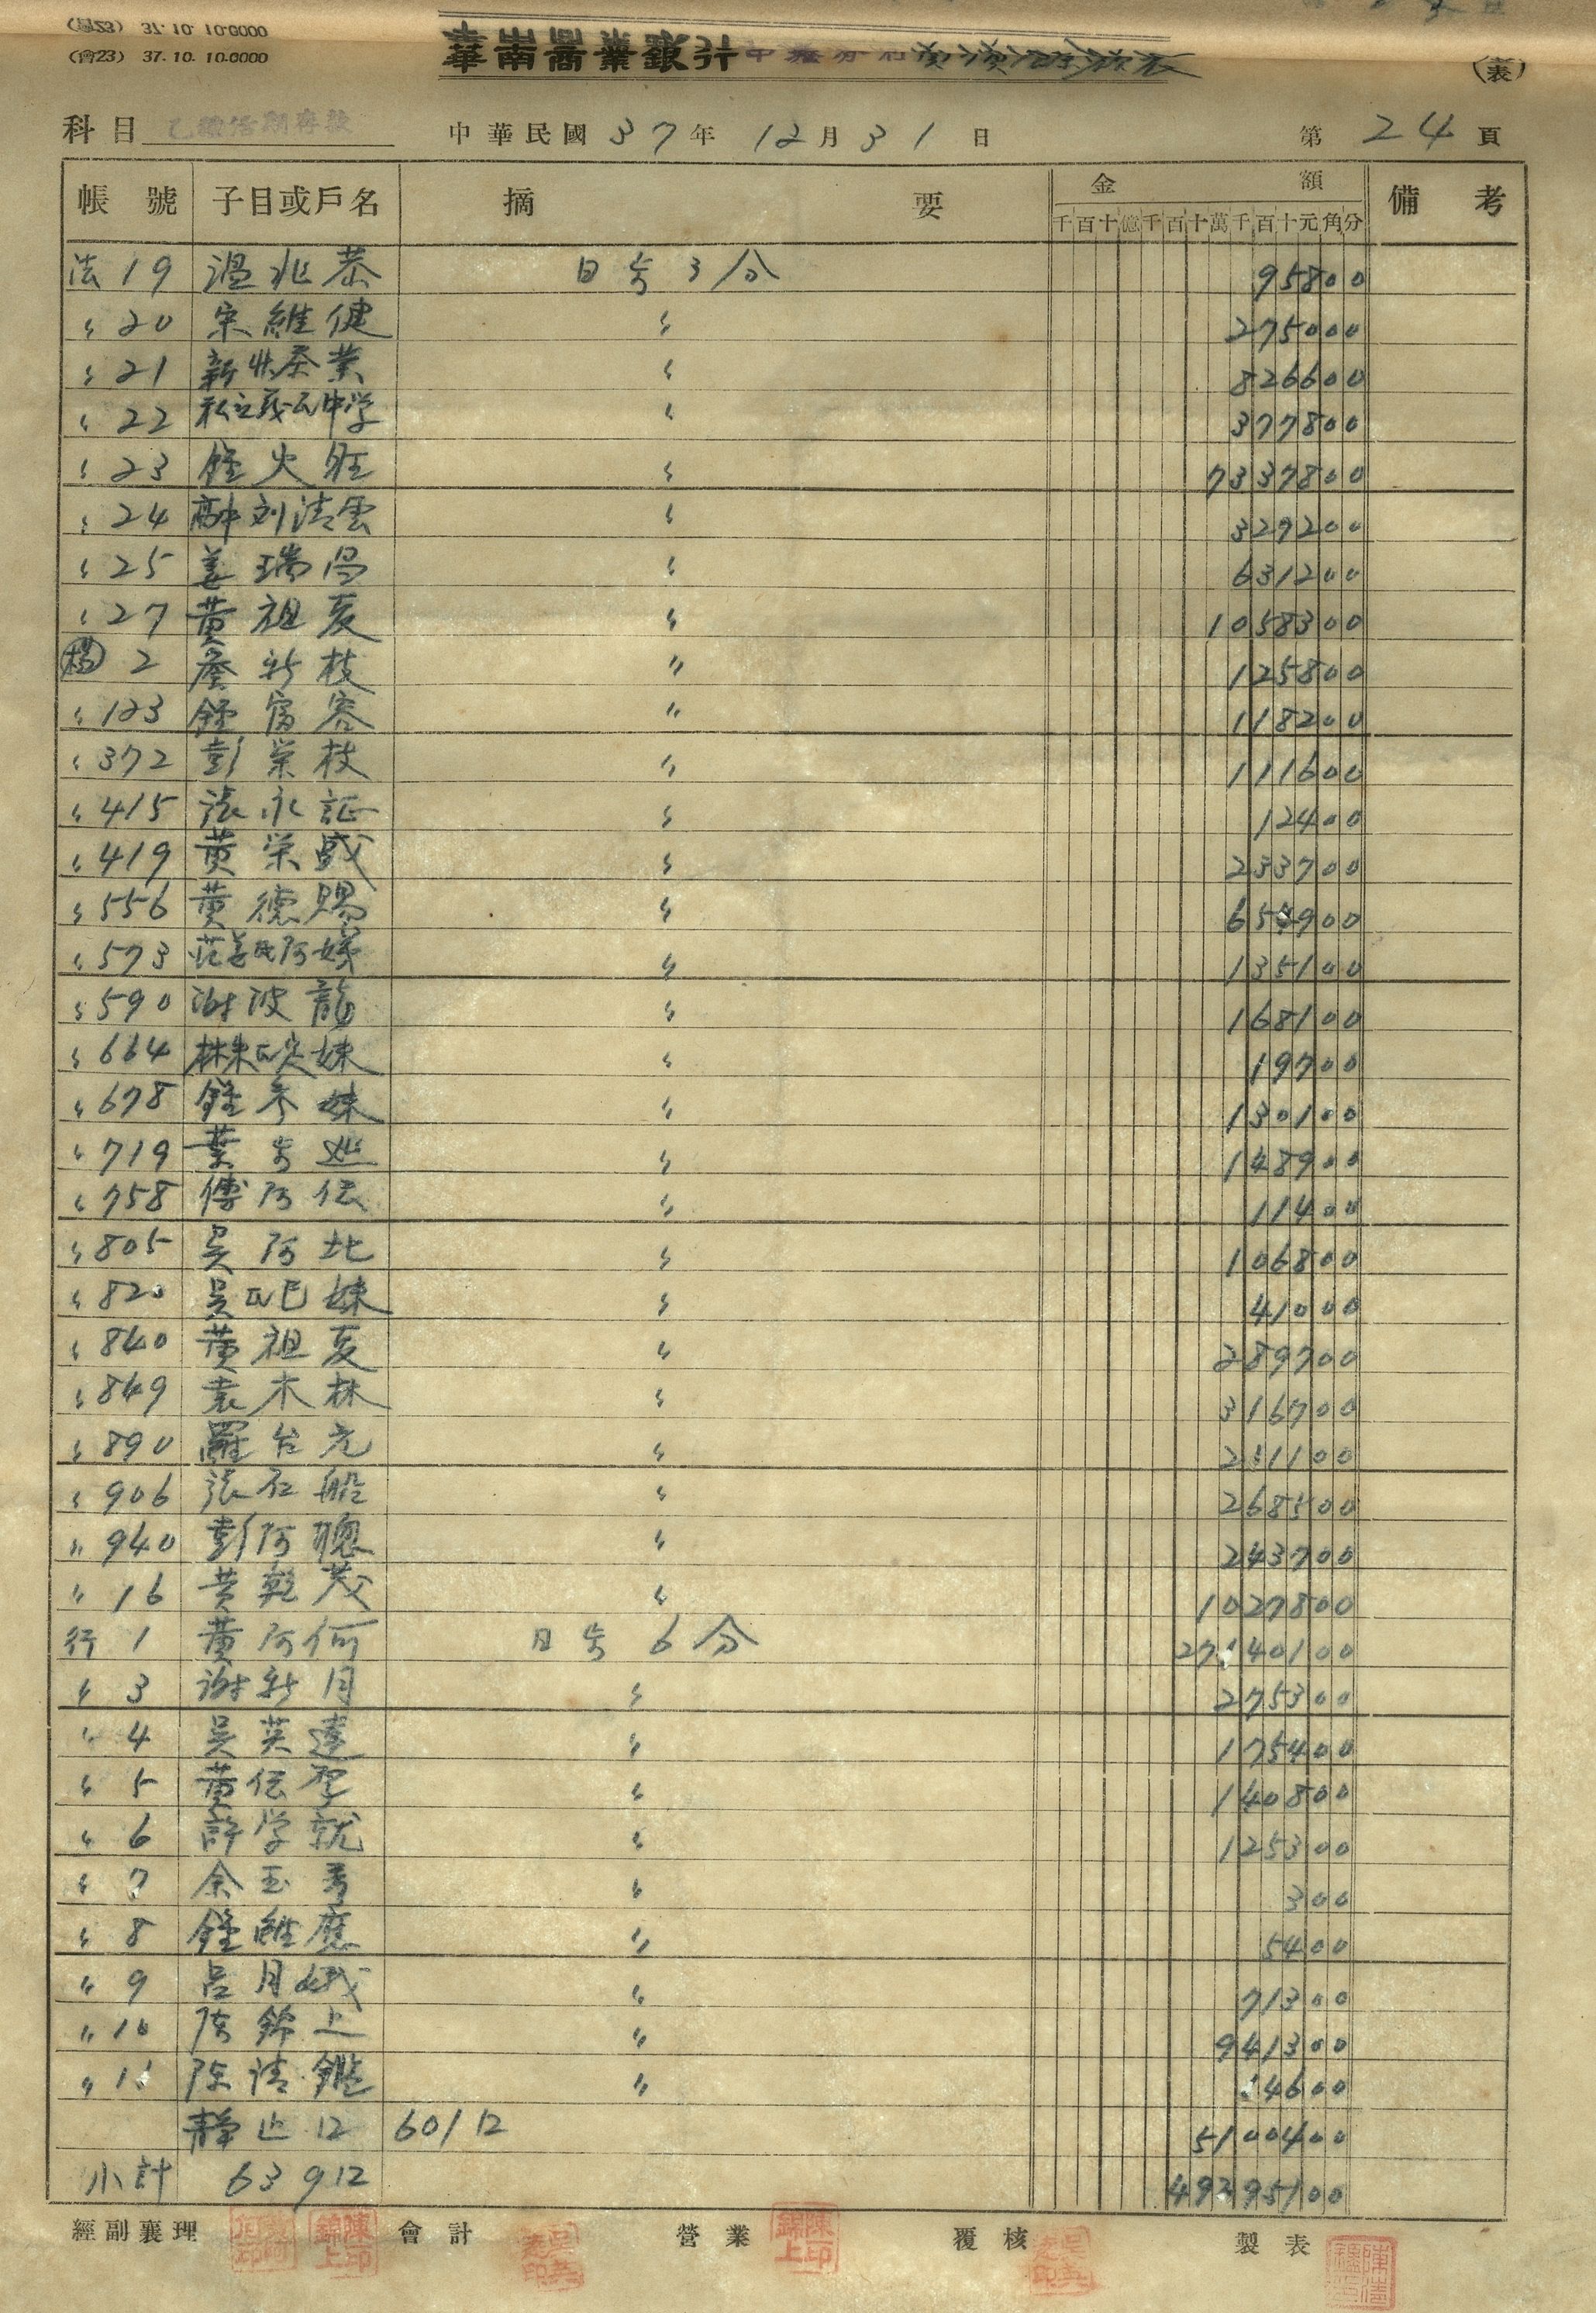 (會23) 37.10.10.0000
華南商業銀行
(表)
科目 乙種活期存款 中華民國 37年 12月 31日 第 24 頁
帳號 子目或戶名 摘要 金額 備考
千百十億千百十萬千百十元角分
法 19 溫兆恭 日步3分 95800
〃 20 宋維健 〃 275000
〃 21 新興茶業 〃 826600
〃 22 私立義民中学 〃 377800
〃 23 鍾火旺 〃 7337800
〃 24 刘清雲 〃 329200
〃 25 姜瑞昌 〃 631200
〃 27 黄祖夏 〃 1058300
楊 2 詹新枝 〃 125800
〃 123 鍾富客 〃 118200
〃 372 彭荣枝 〃 111600
〃 415 張永証 〃 12400
〃 419 黄荣 〃 233700
〃 556 黄德賜 〃 65
〃 573 范姜氏阿嬌 〃 135100
〃 590 謝波龍 〃 168100
〃 664 林朱氏 妹 〃 19700
〃 678 鍾 妹 〃 130100
〃 719 葉步 〃 148900
〃 758 傅阿伝 〃 11400
〃 805 吴阿北 〃 106800
〃 820 吴氏巳妹 〃 41000
〃 840 黄祖夏 〃 289700
〃 849 袁木林 〃 316700
〃 890 羅台元 〃 231100
〃 906 張石船 〃 268500
〃 940 彭阿聰 〃 243700
〃 16 黄乾茂 〃 1027800
行 1 黄阿何 日步6分 40100
〃 3 謝新月 〃 275300
〃 4 吴英達 〃 175400
〃 5 黄伝聖 〃 140800
〃 6 許学就 〃 125300
〃 7 余玉秀 〃 300
〃 8 鍾維應 〃 5400
〃 9 呂月娥 〃 71300
〃 10 陳錦上 〃 941300
〃 11 陳清鑑 〃 14600
靜止口 601口 5100400
小計 639口
經副襄理 會計 營業 覆核 製表
陳印錦上
陳印錦上